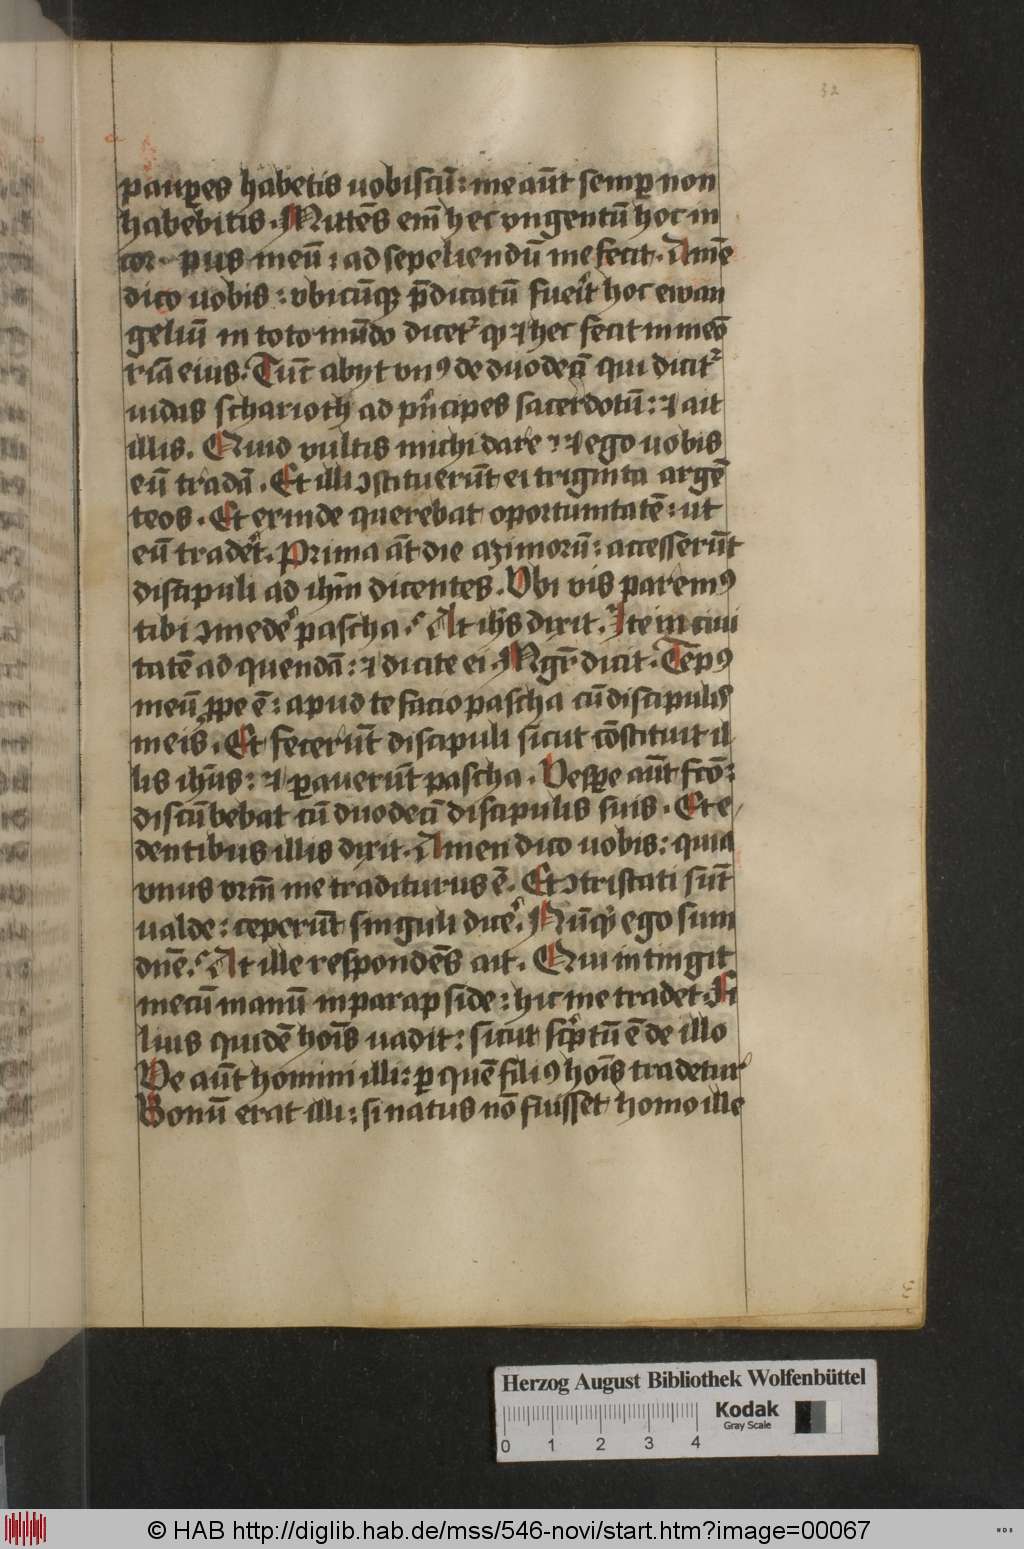 32
paup̱es habetis uobiscū : me aūt semp̱ non
habebitis . Mittēs em̄ hec vngentū hoc in
cor pus meū : ad sepeliendū me fecit . Amē
dico uobis : vbicūqꝫ p̄dicatū fuerit hoc ewan
gelium in toto mūdo dicetᷣ qꝫ ⁊ hec fecit in meō
riā eius . Tūc abyt vnꝰ de duodecī qui dicitᷣ
iudas scharioth ad pͥncipes sacerdotū : ⁊ ait
illis . Quid vultis michi dare : ⁊ ego uobis
eū tradā . Et illi ꝯstituerūt ei triginta argē
teos . Et exinde querebat oportunitatē : ut
eū tradeᷣt . Prima aūt die azimorū : accesserūt
discipuli ad ihm̄ dicentes . Vbi vis paremꝰ
tibi ꝯmedeᷣ pascha . At ihs̄ dixit . Ite in ciui
tatē ad quendā : ⁊ dicite ei . Mgr̄ dicit . Tēpꝰ
meū ꝓpe ē : apud te facio pascha cū discipulis
meis . Et fecerūt discipuli sicut cōstituit il
lis ihūs : ⁊ ꝑauerūt pascha . Vesꝑe aūt fcō :
discūbebat cū duodecī discipulis suis . Et e
dentibus illis dixit . Amen dico uobis : quia
vnus vrm̄ me traditurus ē . Et ꝯtristati sūt
ualde : ceperūt singuli diceᷣ . Nūqͥd ego sum
dnē . At ille respondēs ait . Qui intingit
mecū manū in parapside : hic me tradet . Fi
lius quidē hoīs uadit : sicut scͥptū ē de illo
Ve aūt homini illi : ꝑ quē filiꝰ hoīs tradetur
Bonū erat illi : si natus nō fuisset homo ille
Herzog August Bibliothek Wolfenbüttel
Kodak
Gray Scale
0 1 2 3 4
© HAB http://diglib.hab.de/mss/546-novi/start.htm?image=00067